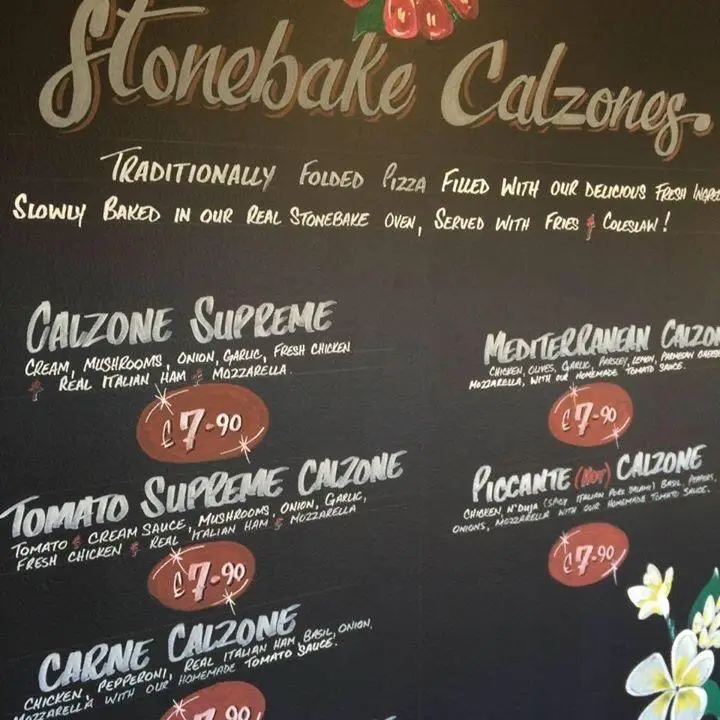 Stonebake Calzones
TRADITIONALLY FOLDED PIZZA FILLED WITH OUR DELICIOUS FRESH
SLOWLY BAKED IN OUR REAL STONEBAKE OVEN, SERVED WITH FRIES & COLESLAW!
CALZONE SUPREME
CREAM, MUSHROOMS, ONION, GARLIC, FRESH CHICKEN
& REAL ITALIAN HAM & MOZZARELLA.
£7-90
TOMATO SUPREME CALZONE
TOMATO & CREAM SAUCE, MUSHROOMS, ONION, GARLIC,
FRESH CHICKEN & REAL ITALIAN HAM & MOZZARELLA
£7-90
CARNE CALZONE
CHICKEN, PEPPERONI, REAL ITALIAN HAM, BASIL, ONION,
MOZZARELLA WITH OUR HOMEMADE TOMATO SAUCE.
7-90
MEDITERRANEAN CALZON
CHICKEN, OLIVES, GARLIC, PARSLEY, LEMON, PARMESAN CHEESE
MOZZARELLA, WITH OUR HOMEMADE TOMATO SAUCE.
£7-90
PICCANTE (HOT) CALZONE
CHICKEN, N'DUJA (SPICY ITALIAN PORK SALAMI) BASIL, PEPPERS,
ONIONS, MOZZARELLA WITH OUR HOMEMADE TOMATO SAUCE.
£7-90